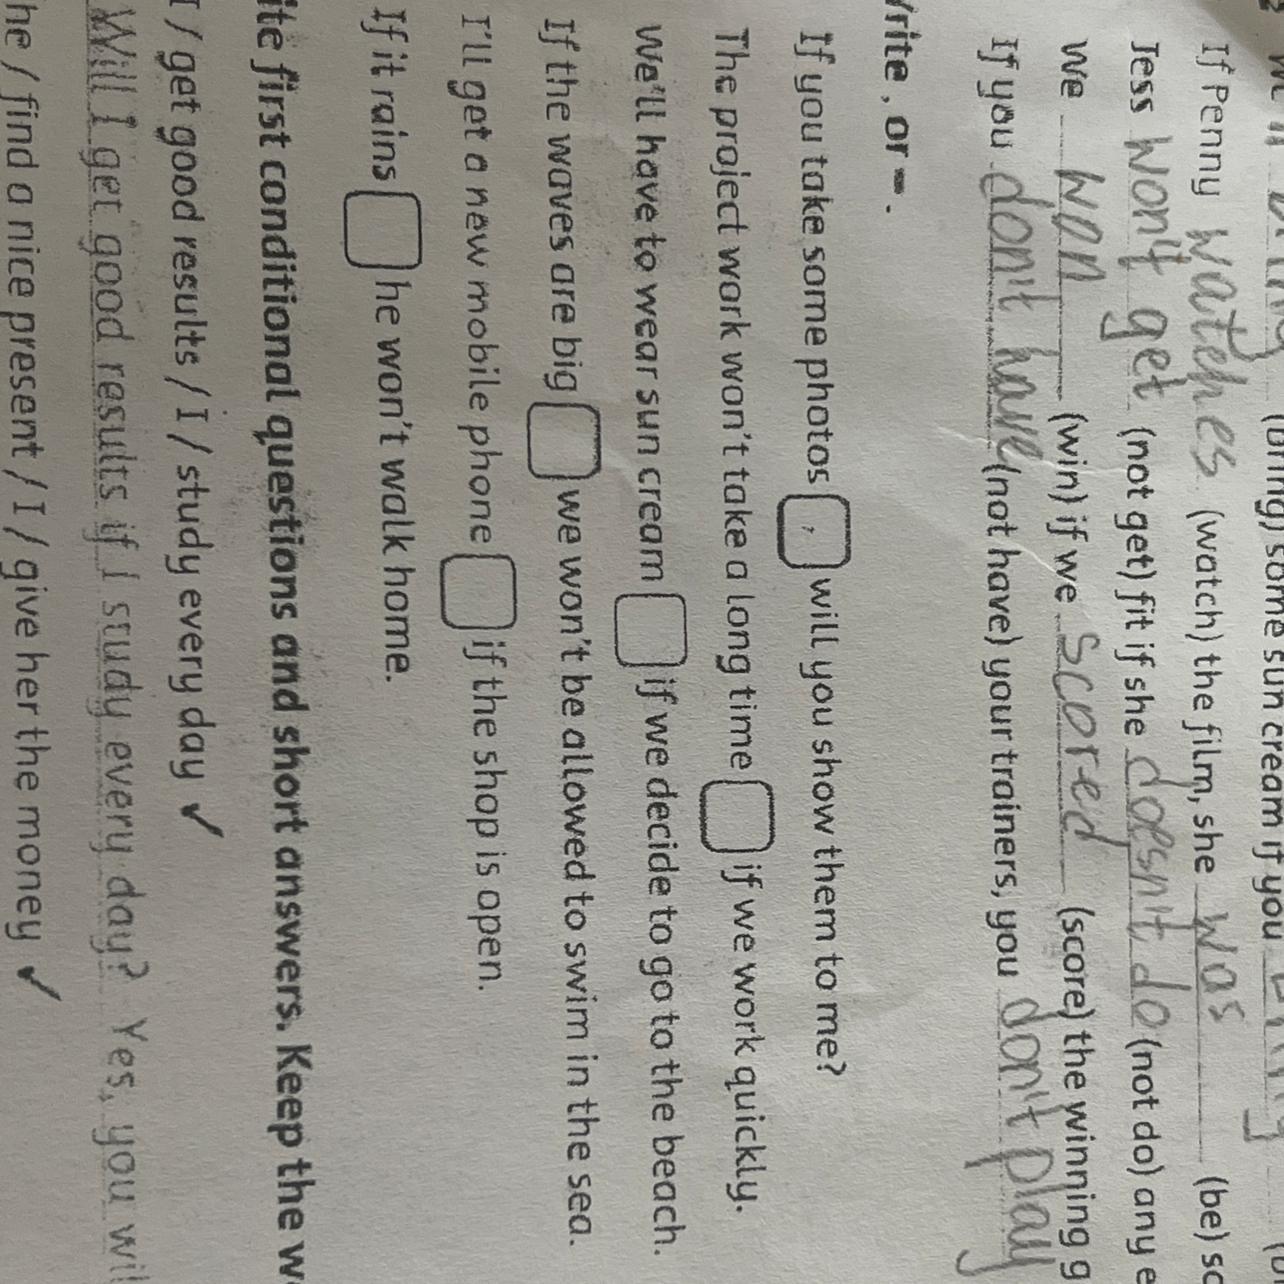 (bring) some sun cream if you
If Penny watches (watch) the film, she was (be) sc
Jess won't get (not get) fit if she doesn't do (not do) any e
We won (win) if we scored (score) the winning g
If you don't have (not have) your trainers, you don't play
Write , or – .
If you take some photos , will you show them to me?
The project work won't take a long time if we work quickly.
We'll have to wear sun cream if we decide to go to the beach.
If the waves are big we won't be allowed to swim in the sea.
I'll get a new mobile phone if the shop is open.
If it rains he won't walk home.
ite first conditional questions and short answers. Keep the w
I / get good results / I / study every day ✓
Will I get good results if I study every day? Yes, you wil
he / find a nice present / I / give her the money ✓